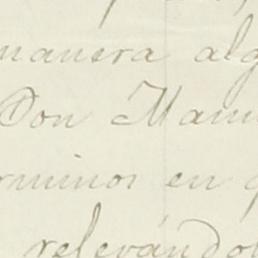 manera alg
Don Manu
erminos en q
relevándol